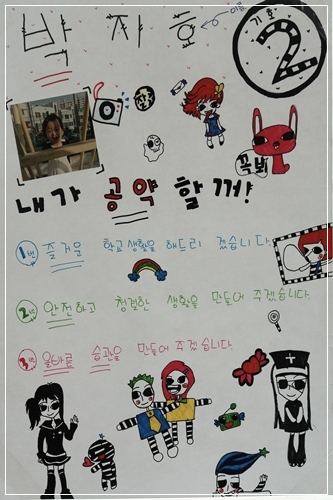 박지효
이름
기호
2
꼭 뵤
내가 공약 할께!
1번 즐거운 학교생활을 해드리 겠습니다.
2번 안전하고 청결한 생활을 만들어 주겠습니다.
3번 올바른 습관을 만들어 주겠습니다.